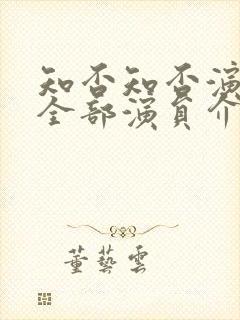 知否知否演
全部演員介
董藝雲